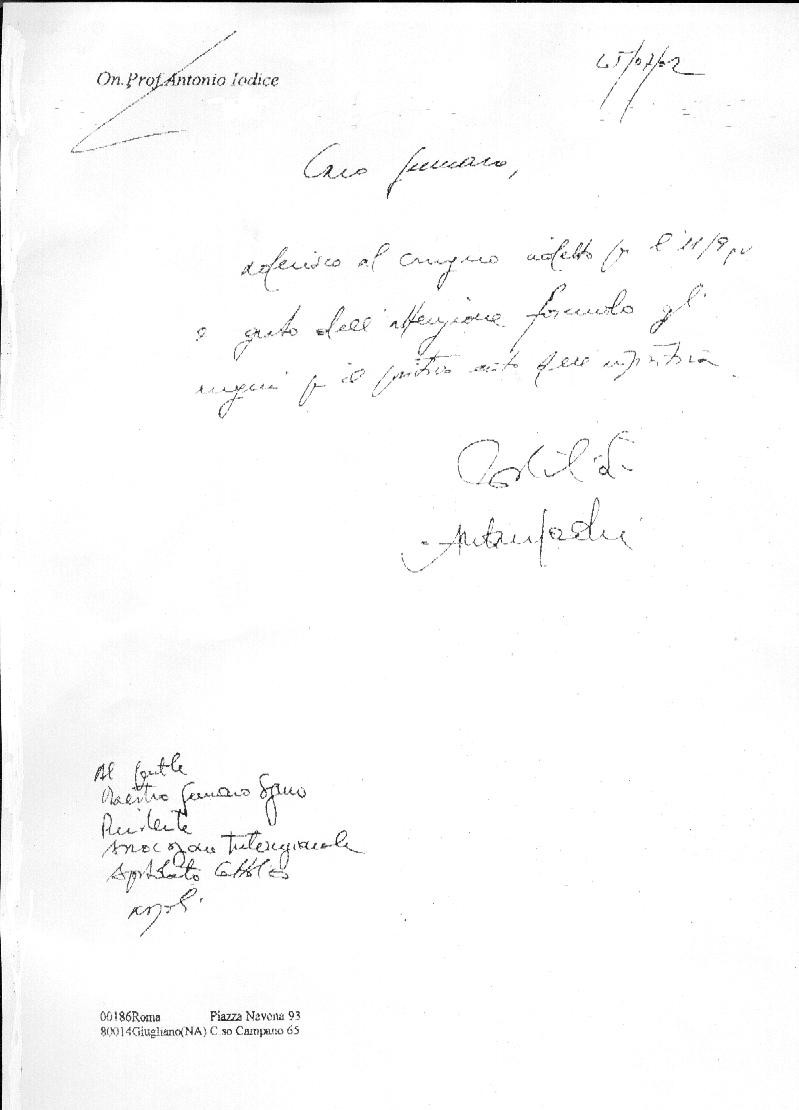 On. Prof. Antonio Iodice
15/07/02
Caro Gennaro,
aderisco al convegno indetto per l'11/9 pv
e grato dell'attenzione formulo gli
auguri per il positivo esito dell'
Cordialità
Antonio Iodice
Al gentile
Maestro Gennaro
Presidente
Associazione Interregionale
Apostolato Cattolico
Napoli
00186Roma Piazza Navona 93
80014Giugliano(NA) C.so Campano 65